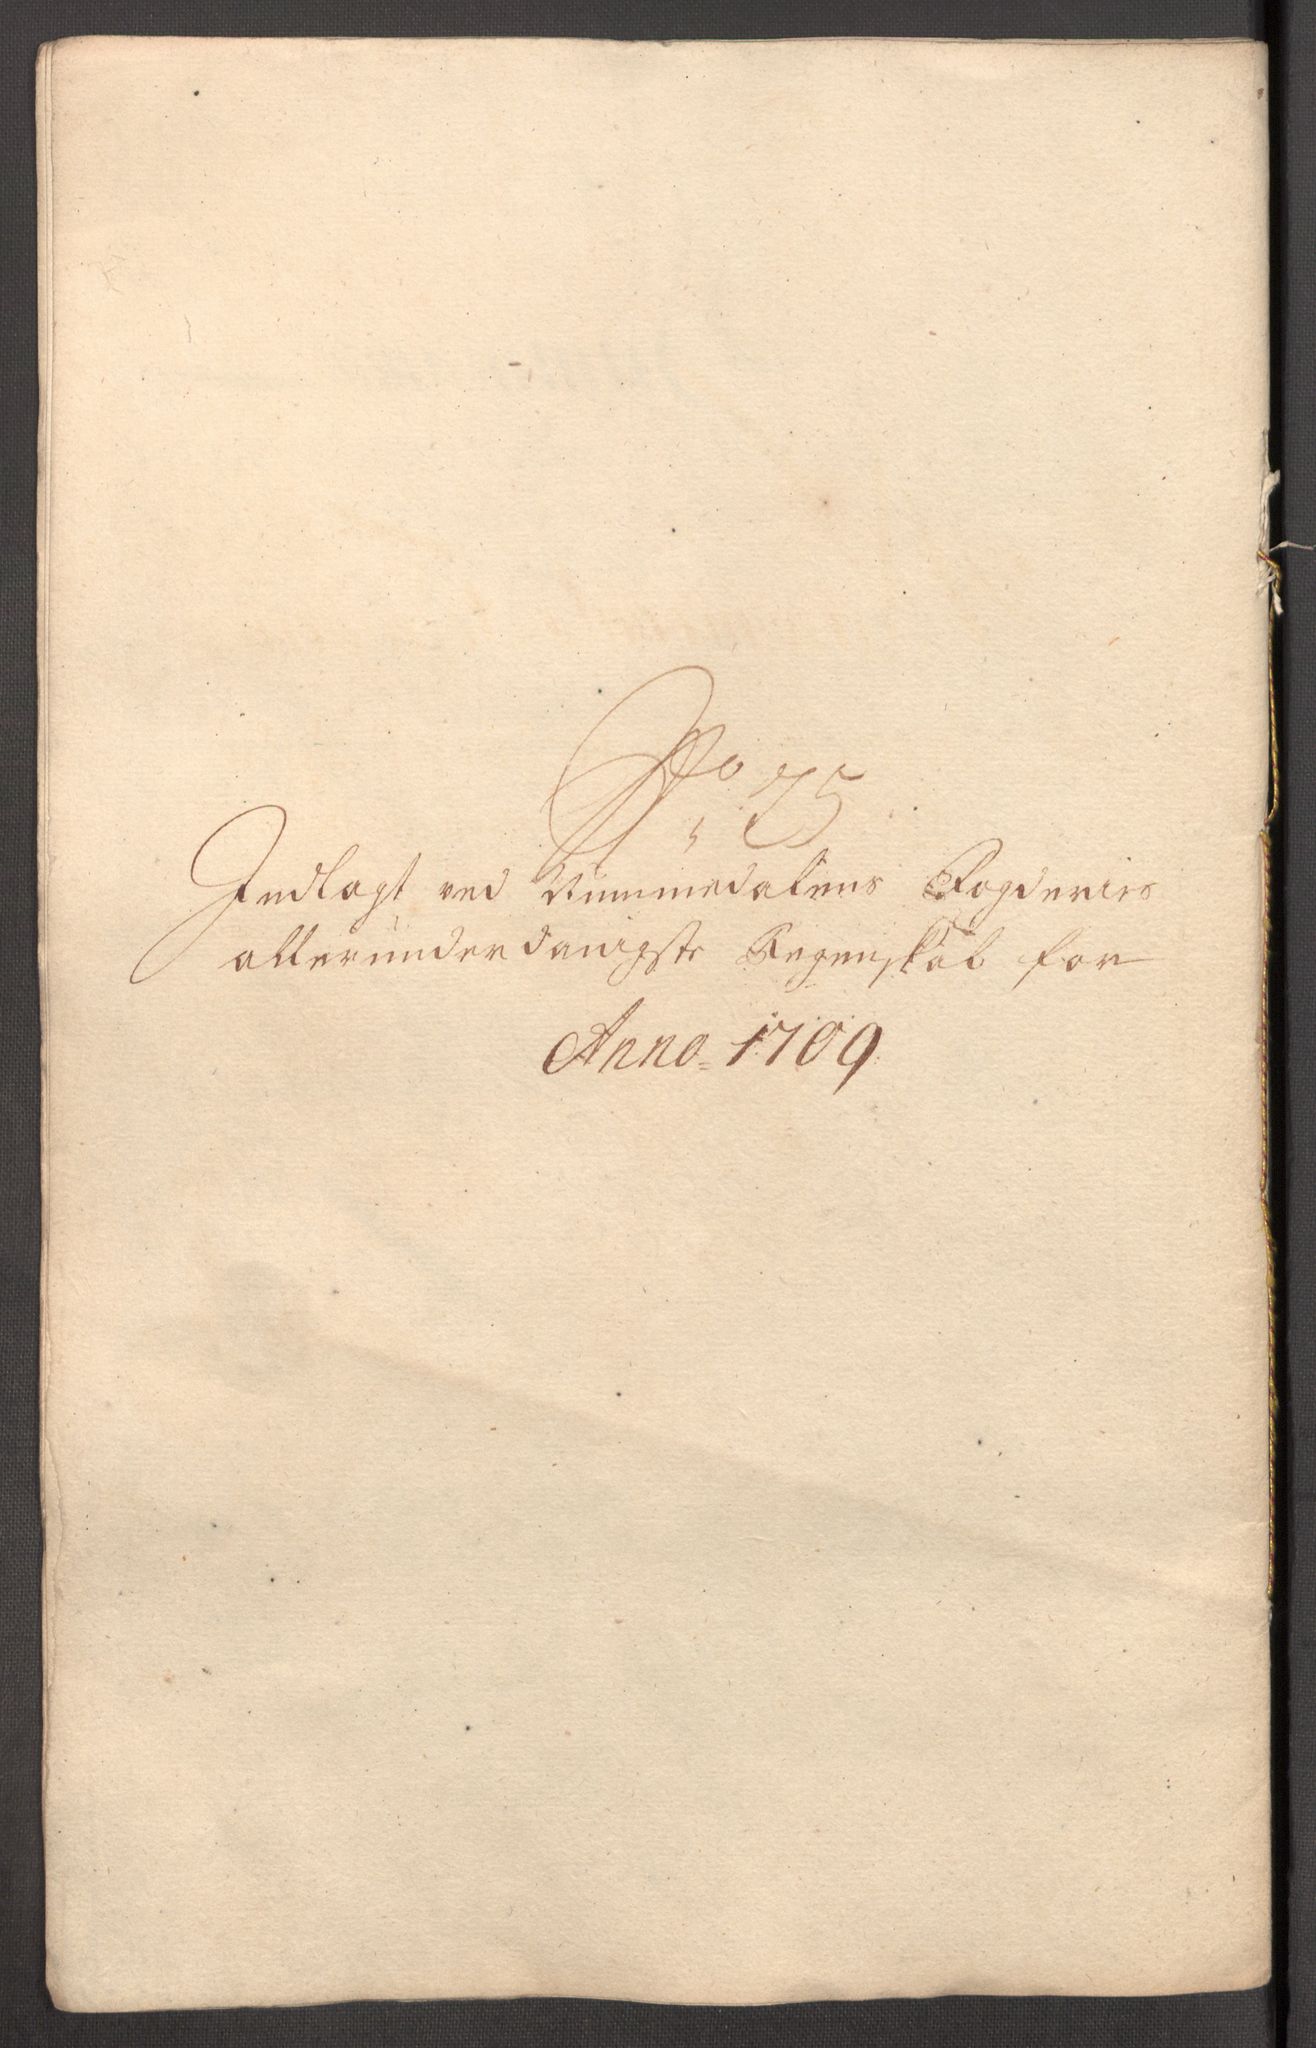 No 25
Indlagt ved Nummedalens Fogderies
allerunderdanigste Regenskab for
Anno 1709